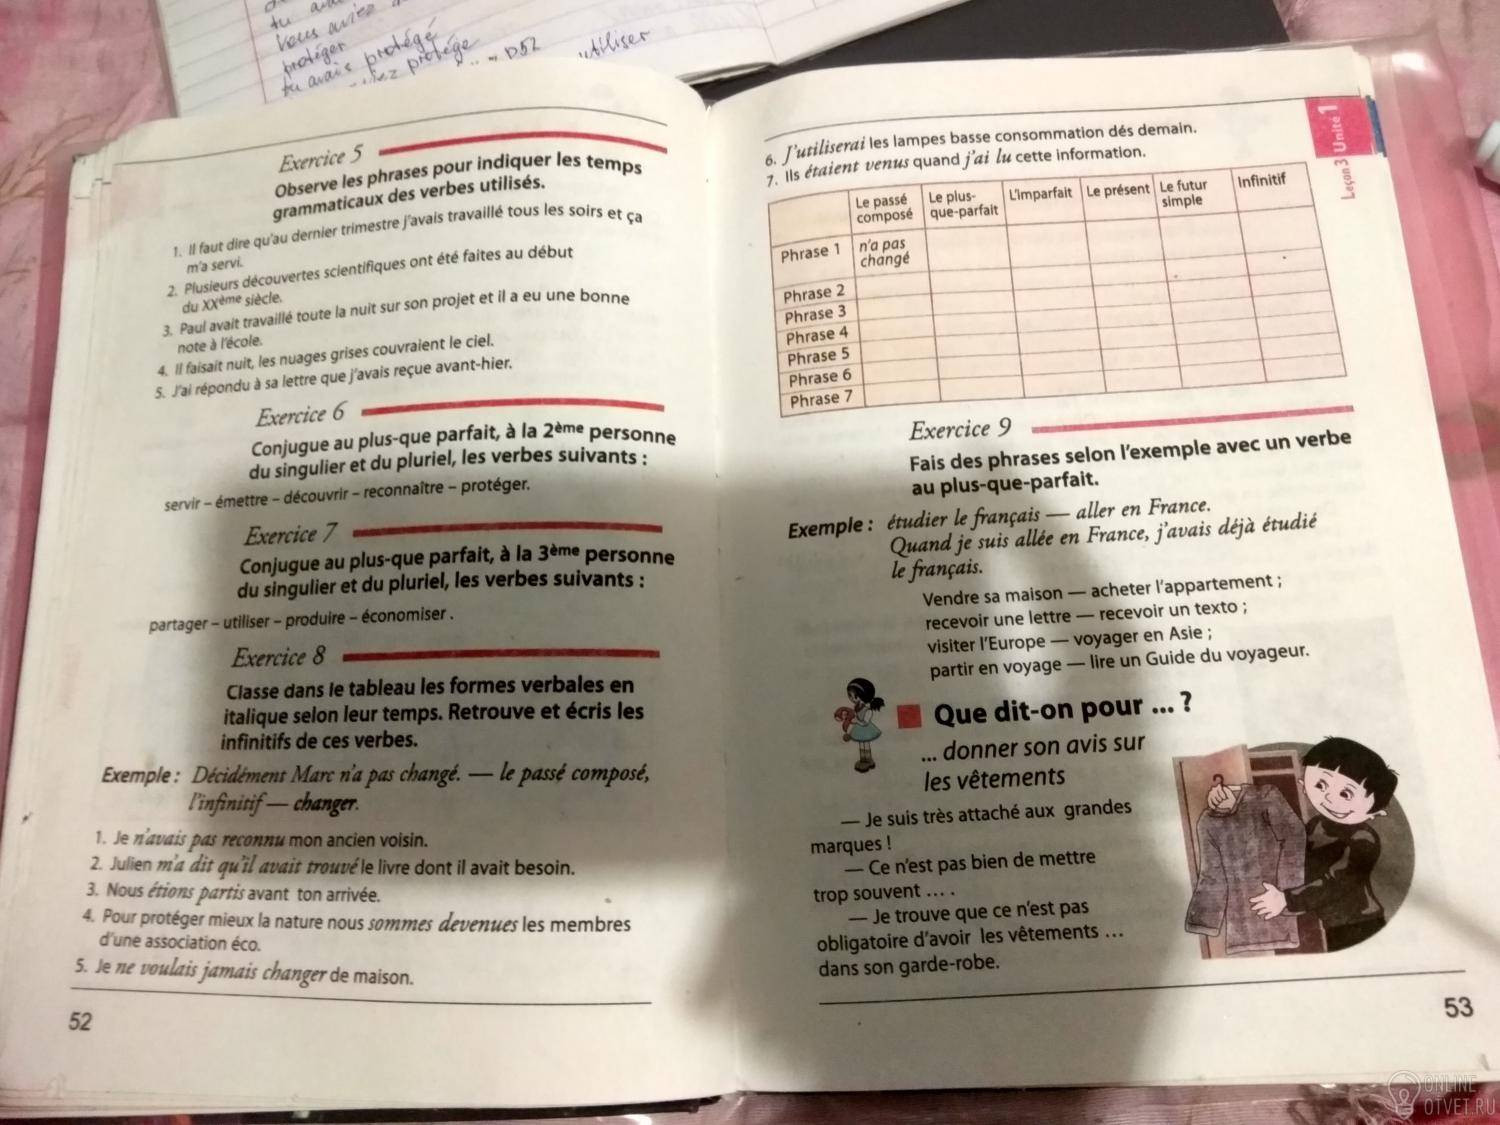 tu avai
Vous aviez
protéger
tu avais protégé
viez protégé ... D52
utiliser
Exercice 5
Observe les phrases pour indiquer les temps
grammaticaux des verbes utilisés.
1. Il faut dire qu'au dernier trimestre j'avais travaillé tous les soirs et ça
m'a servi.
2. Plusieurs découvertes scientifiques ont été faites au début
du XXème siècle.
3. Paul avait travaillé toute la nuit sur son projet et il a eu une bonne
note à l'école.
4. Il faisait nuit, les nuages grises couvraient le ciel.
5. J'ai répondu à sa lettre que j'avais reçue avant-hier.
Exercice 6
Conjugue au plus-que parfait, à la 2ème personne
du singulier et du pluriel, les verbes suivants :
servir – émettre – découvrir – reconnaître – protéger.
Exercice 7
Conjugue au plus-que parfait, à la 3ème personne
du singulier et du pluriel, les verbes suivants :
partager – utiliser – produire – économiser .
Exercice 8
Classe dans le tableau les formes verbales en
italique selon leur temps. Retrouve et écris les
infinitifs de ces verbes.
Exemple : Décidément Marc n'a pas changé. — le passé composé,
l'infinitif — changer.
1. Je n'avais pas reconnu mon ancien voisin.
2. Julien m'a dit qu'il avait trouvé le livre dont il avait besoin.
3. Nous étions partis avant ton arrivée.
4. Pour protéger mieux la nature nous sommes devenues les membres
d'une association éco.
5. Je ne voulais jamais changer de maison.
52
6. J'utiliserai les lampes basse consommation dés demain.
7. Ils étaient venus quand j'ai lu cette information.
Leçon 3 Unité 1
Le passé composé Le plus-que-parfait L'imparfait Le présent Le futur simple Infinitif
Phrase 1 n'a pas changé
Phrase 2
Phrase 3
Phrase 4
Phrase 5
Phrase 6
Phrase 7
Exercice 9
Fais des phrases selon l'exemple avec un verbe
au plus-que-parfait.
Exemple : étudier le français — aller en France.
Quand je suis allée en France, j'avais déjà étudié
le français.
Vendre sa maison — acheter l'appartement ;
recevoir une lettre — recevoir un texto ;
visiter l'Europe — voyager en Asie ;
partir en voyage — lire un Guide du voyageur.
Que dit-on pour ... ?
... donner son avis sur
les vêtements
— Je suis très attaché aux grandes
marques !
— Ce n'est pas bien de mettre
trop souvent ... .
— Je trouve que ce n'est pas
obligatoire d'avoir les vêtements ...
dans son garde-robe.
53
ONLINE
OTVET.RU